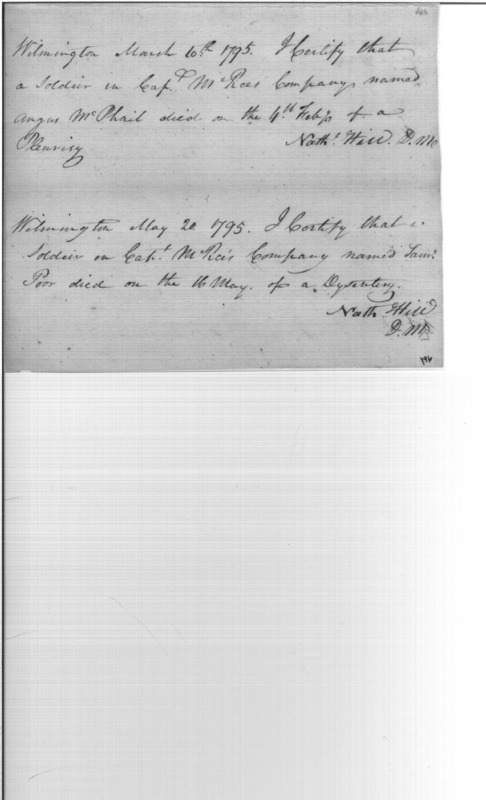 Wilmington March 10th 1795. I Certify that
a Soldier in Capt McRees Company named
Angus McPhail died on the 4th Feby of a
Pleurisy Nathl. Hill D.M.
Wilmington May 20 1795. I Certify that a
Soldier in Capt McRee's Company named Saml
Poor died on the 16 May. of a Dysentery.
Nath Hill
D.M.